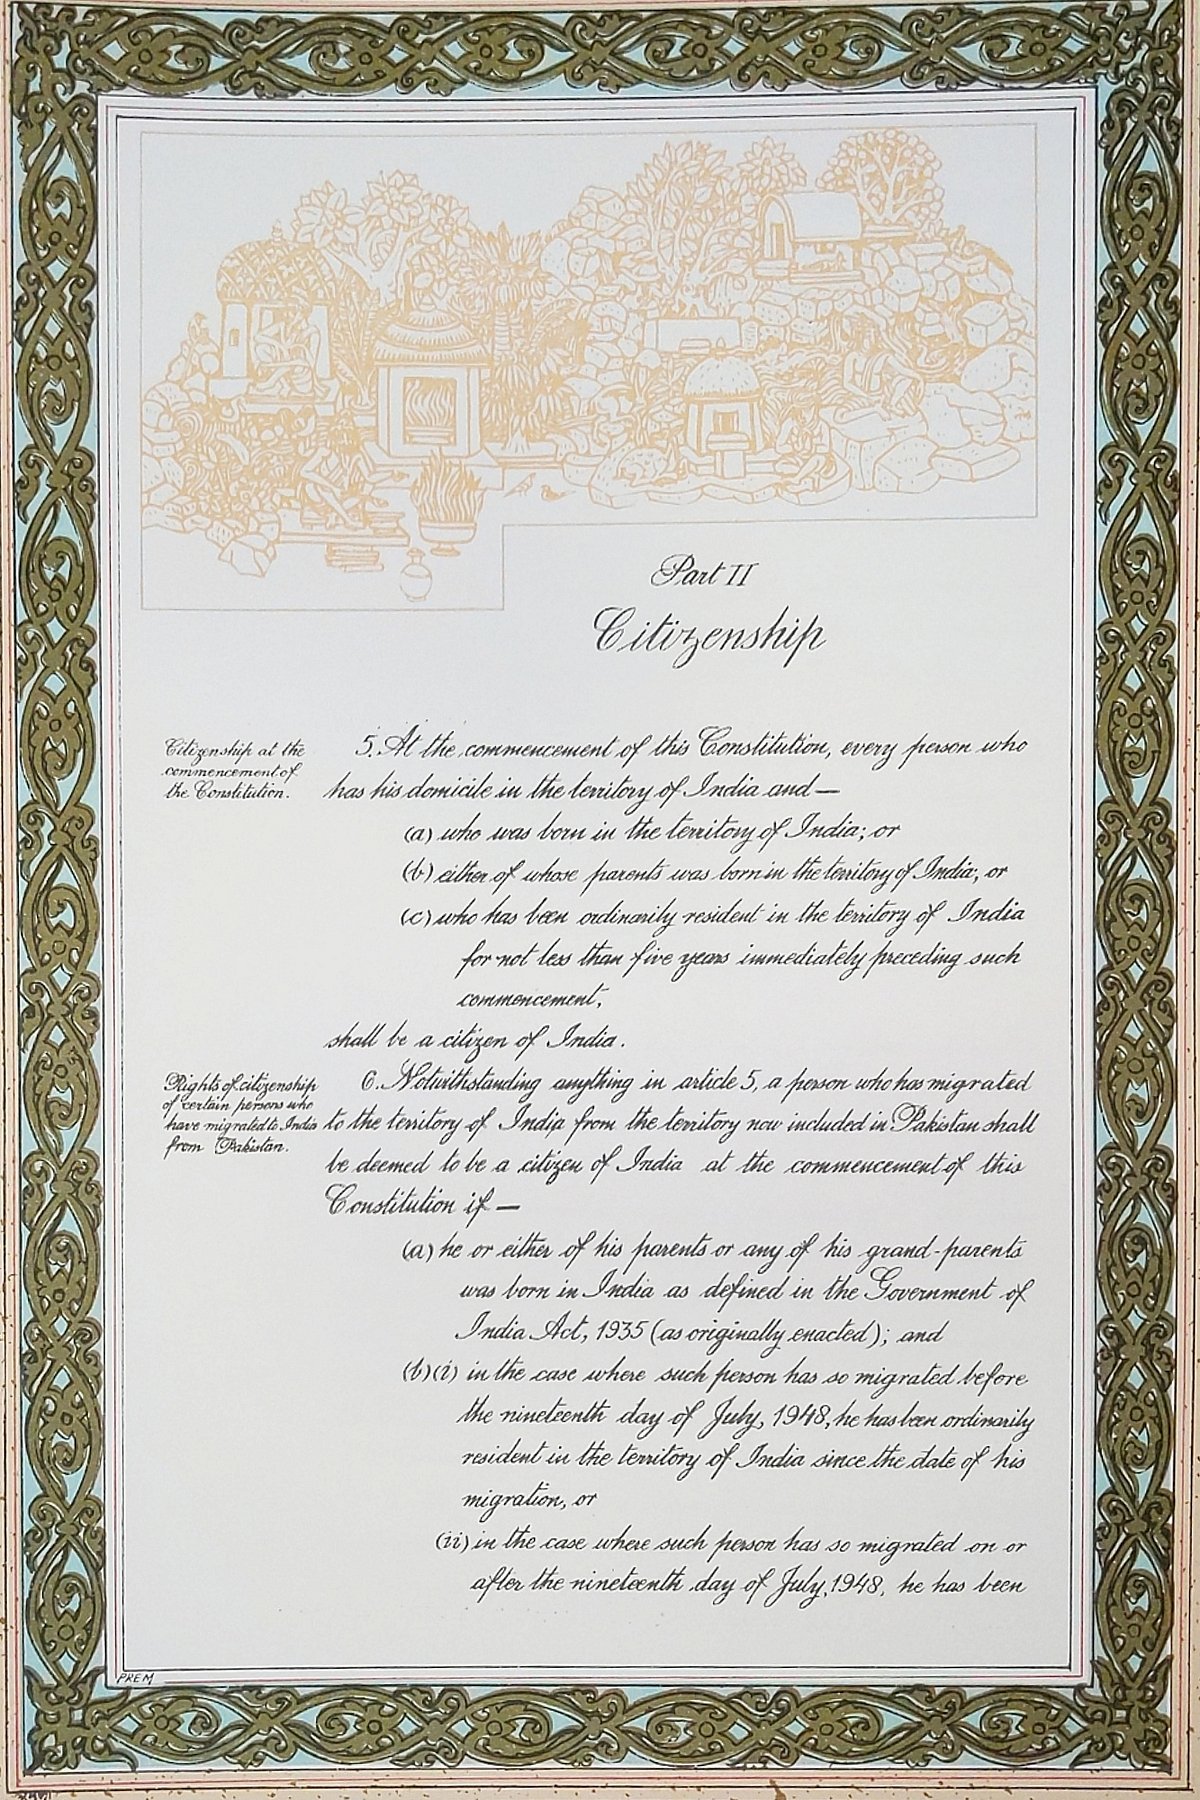 Part II
Citizenship
Citizenship at the
commencement of
the Constitution.
5. At the commencement of this Constitution, every person who
has his domicile in the territory of India and—
(a) who was born in the territory of India; or
(b) either of whose parents was born in the territory of India; or
(c) who has been ordinarily resident in the territory of India
for not less than five years immediately preceding such
commencement,
shall be a citizen of India.
Rights of citizenship
of certain persons who
have migrated to India
from Pakistan.
6. Notwithstanding anything in article 5, a person who has migrated
to the territory of India from the territory now included in Pakistan shall
be deemed to be a citizen of India at the commencement of this
Constitution if —
(a) he or either of his parents or any of his grand-parents
was born in India as defined in the Government of
India Act, 1935 (as originally enacted); and
(b) (i) in the case where such person has so migrated before
the nineteenth day of July, 1948, he has been ordinarily
resident in the territory of India since the date of his
migration, or
(ii) in the case where such person has so migrated on or
after the nineteenth day of July, 1948, he has been
PREM